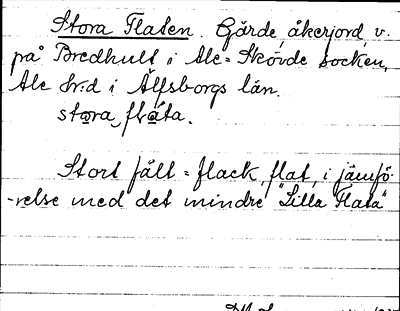 Stora Flaten. Gärde, åkerjord, v.
på Bredhult i Ale-Skövde socken,
Ale h:d i Älfsborgs län.
stora, flata.
Stort fält = flack, flat, i jämfö-
-relse med det mindre "Lilla Flata"